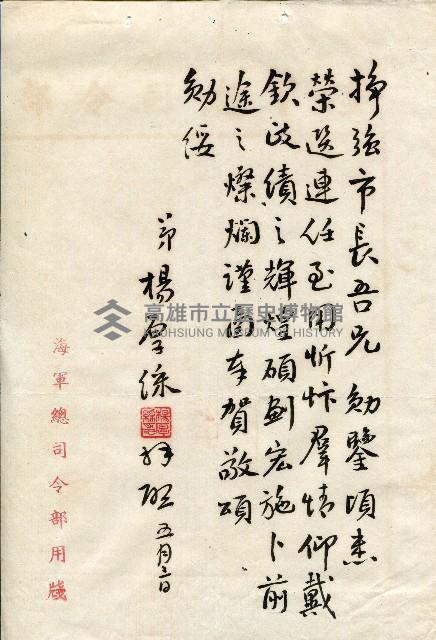 掙強市長吾兄勛鑒頃悉
榮選連任至用忻忭羣情仰戴
欽政績之輝煌碩劃宏施卜前
途之燦爛謹函奉賀敬頌
勛綏
弟楊厚綵拜啟五月三日
海軍總司令部用牋
高雄市立歷史博物館
KAOHSIUNG MUSEUM OF HISTORY